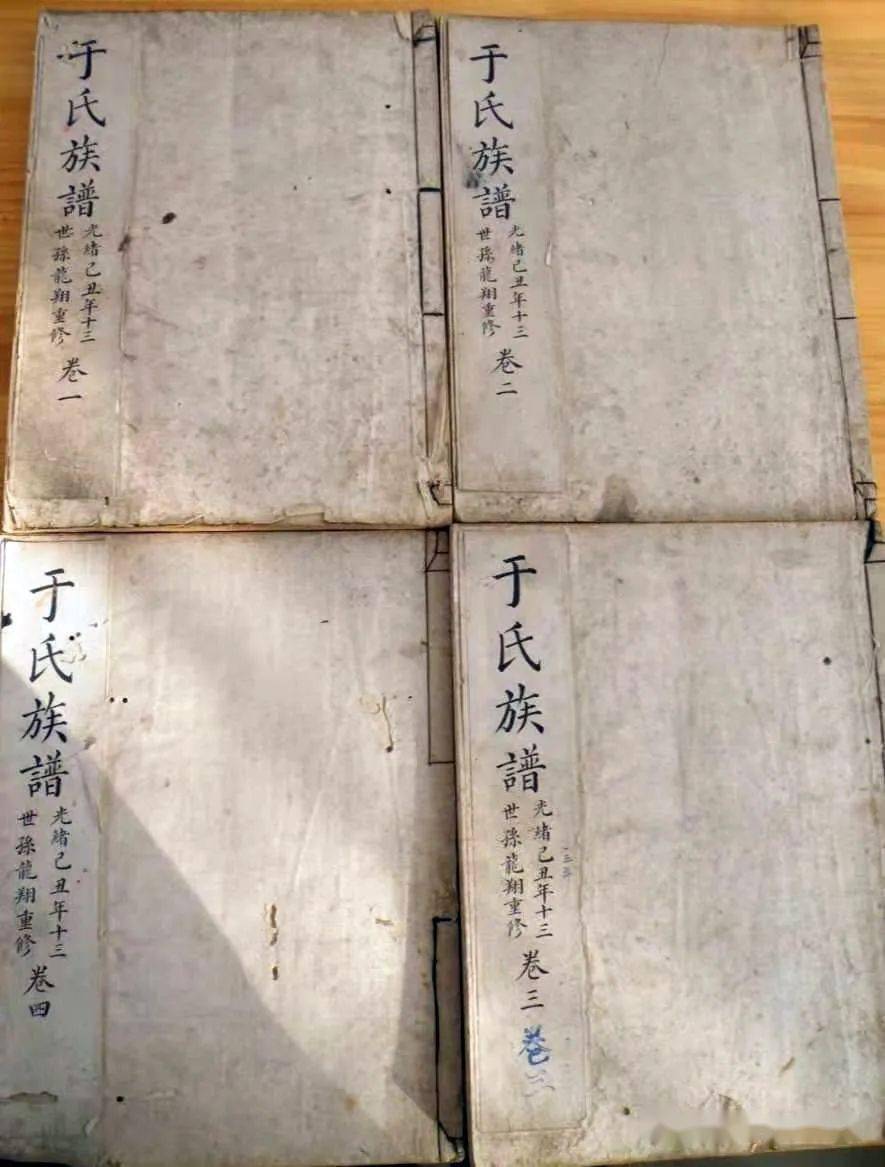 于氏族譜
光緒己丑年十三
世孫龍翔重修
卷一
于氏族譜
光緒己丑年十三
世孫龍翔重修
卷二
于氏族譜
光緒己丑年十三
世孫龍翔重修
卷三
卷三
于氏族譜
光緒己丑年十三
世孫龍翔重修
卷四